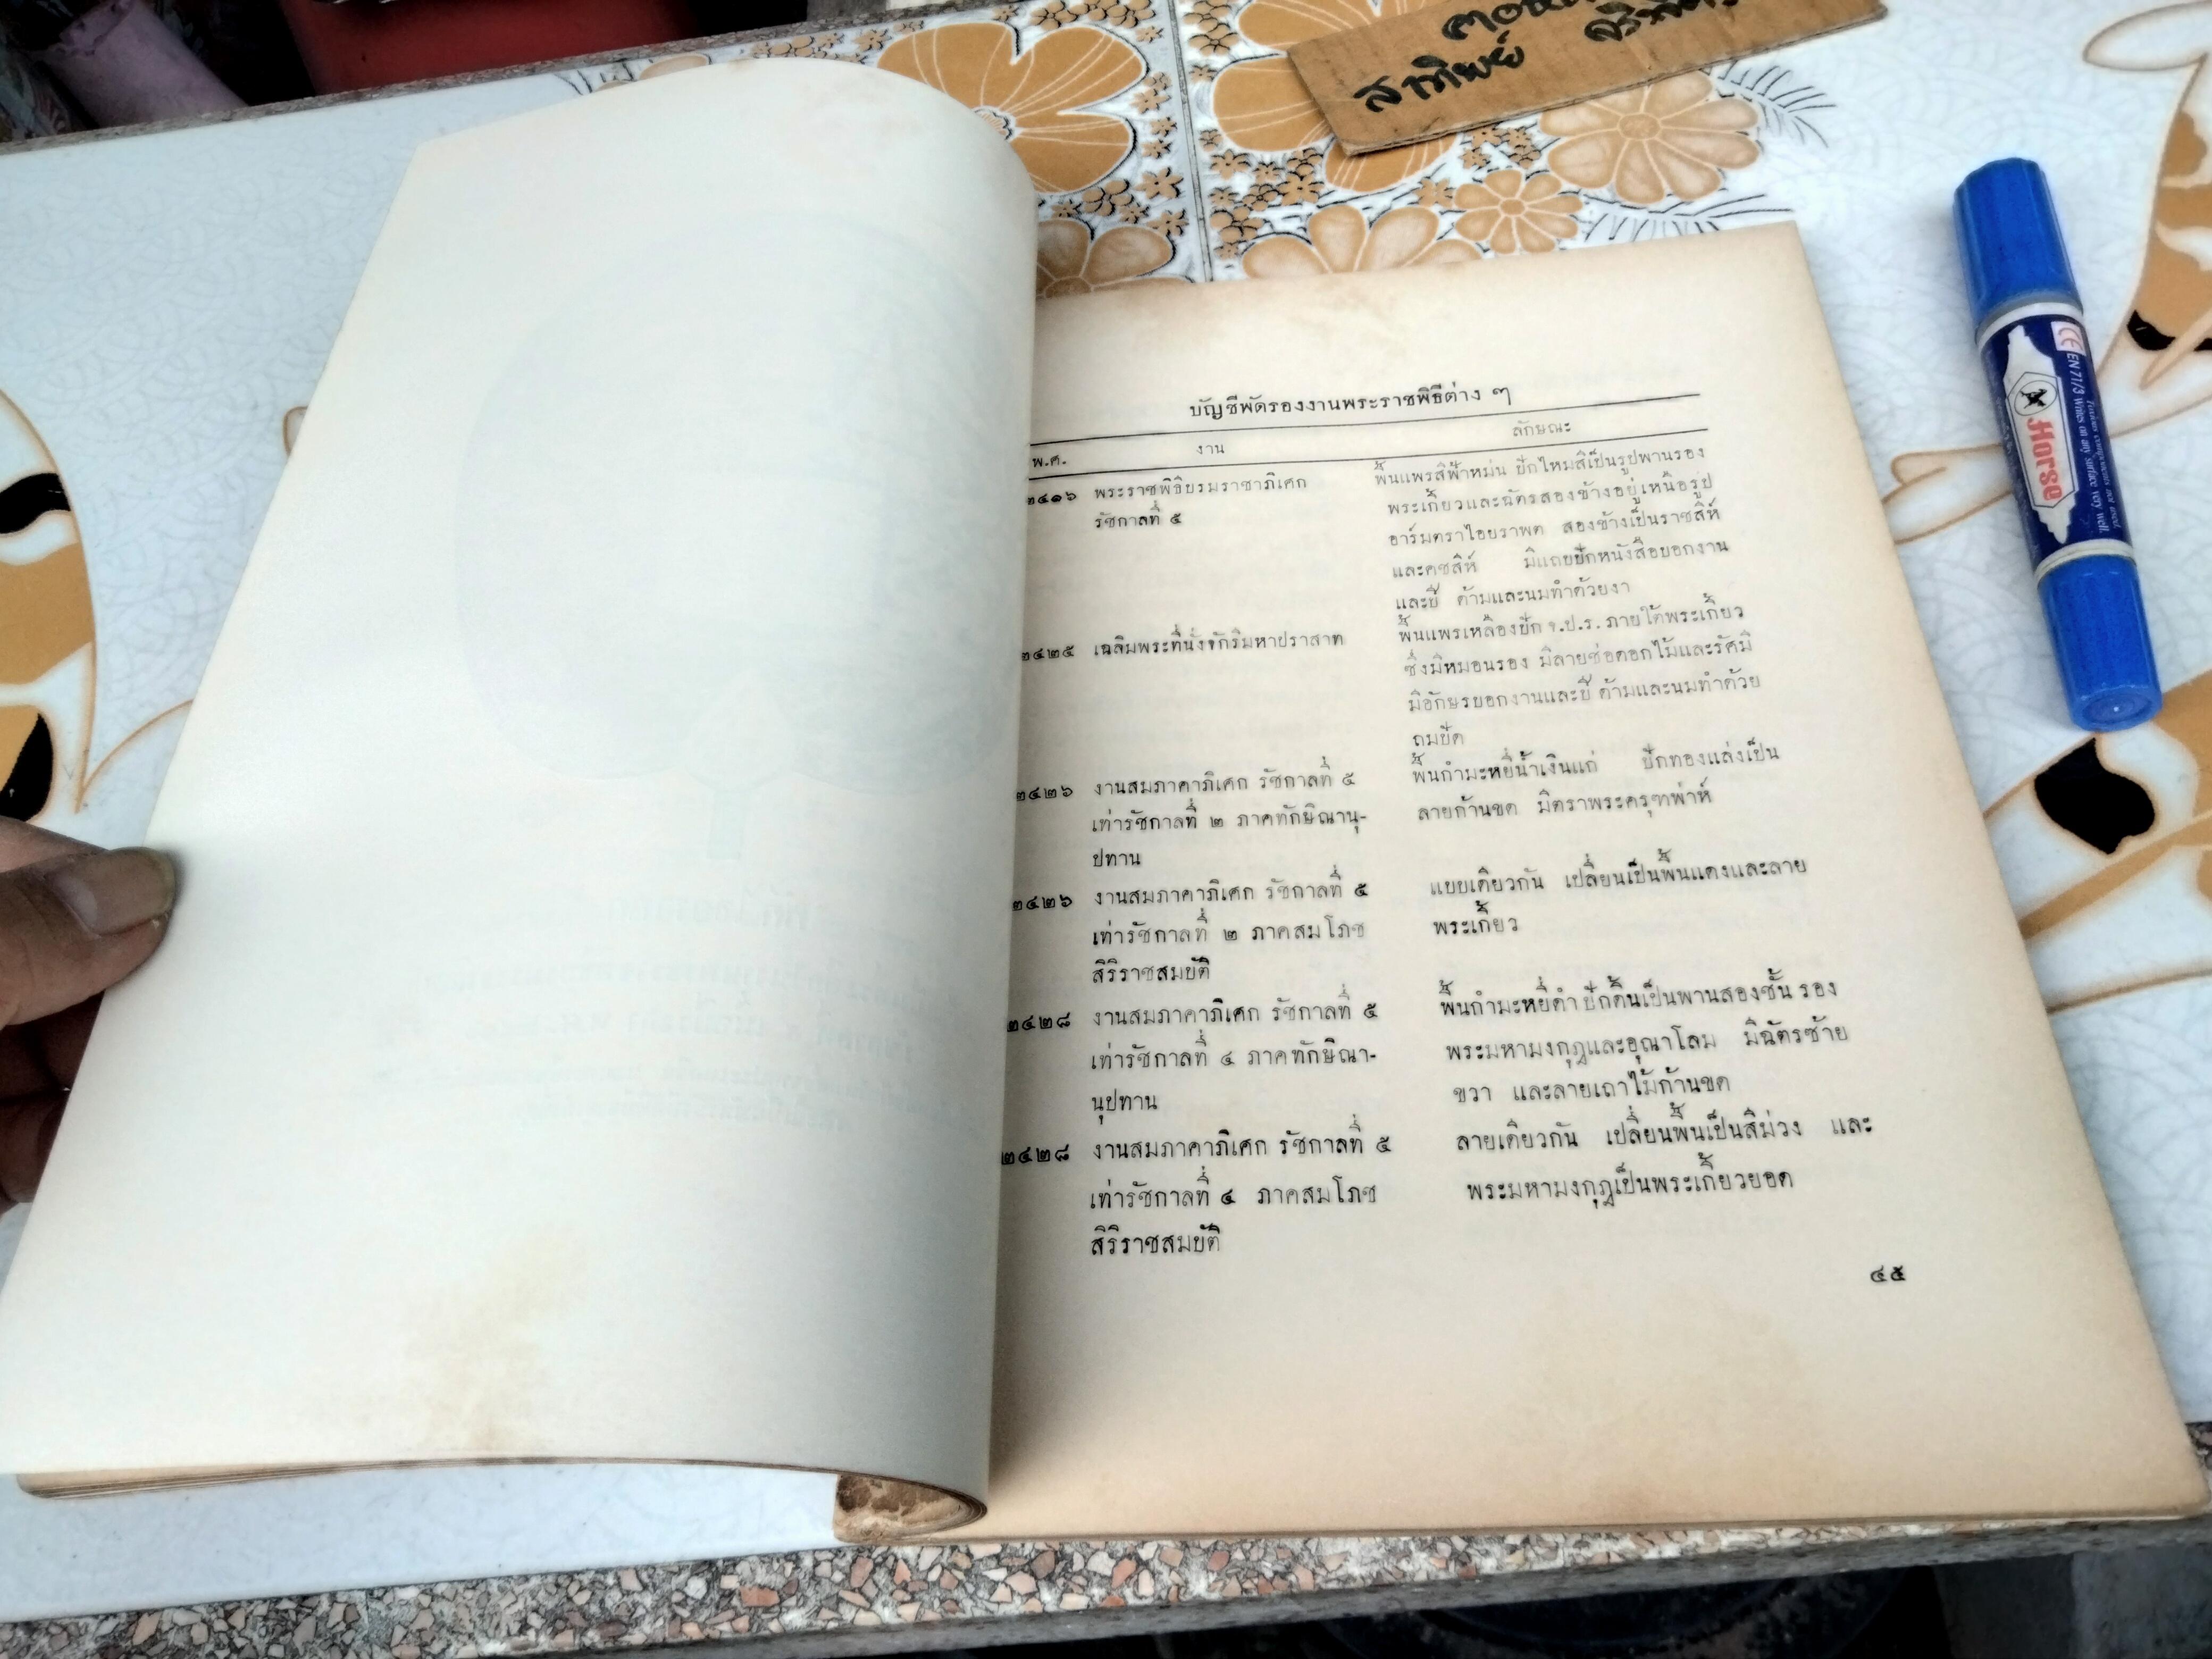 สาทิพย์
บัญชีพัดรองงานพระราชพิธีต่าง ๆ
พ.ศ. งาน ลักษณะ
๒๔๑๖ พระราชพิธีบรมราชาภิเศก พื้นแพรสีฟ้าหม่น ปักไหมสีเป็นรูปพานรอง
รัชกาลที่ ๕ พระเกี้ยวและฉัตรสองข้างอยู่เหนือรูป
อาร์มตราไอยราพต สองข้างเป็นราชสีห์
และคชสีห์ มีแถบปักหนังสือบอกงาน
และปี ด้ามและนมทำด้วยงา
๒๔๒๕ เฉลิมพระที่นั่งจักรีมหาปราสาท พื้นแพรเหลืองปัก จ.ป.ร. ภายใต้พระเกี้ยว
ซึ่งมีหมอนรอง มีลายช่อดอกไม้และรัศมี
มีอักษรบอกงานและปี ด้ามและนมทำด้วย
ถมปัด
๒๔๒๖ งานสมภาคาภิเศก รัชกาลที่ ๕ พื้นกำมะหยี่น้ำเงินแก่ ปักทองแล่งเป็น
เท่ารัชกาลที่ ๒ ภาคทักษิณานุ- ลายก้านขด มีตราพระครุฑพ่าห์
ปทาน
๒๔๒๖ งานสมภาคาภิเศก รัชกาลที่ ๕ แบบเดียวกัน เปลี่ยนเป็นพื้นแดงและลาย
เท่ารัชกาลที่ ๒ ภาคสมโภช พระเกี้ยว
สิริราชสมบัติ
๒๔๒๘ งานสมภาคาภิเศก รัชกาลที่ ๕ พื้นกำมะหยี่ดำ ปักดิ้นเป็นพานสองชั้น รอง
เท่ารัชกาลที่ ๔ ภาคทักษิณา- พระมหามงกุฎและอุณาโลม มีฉัตรซ้าย
นุปทาน ขวา และลายเถาไม้ก้านขด
๒๔๒๘ งานสมภาคาภิเศก รัชกาลที่ ๕ ลายเดียวกัน เปลี่ยนพื้นเป็นสีม่วง และ
เท่ารัชกาลที่ ๔ ภาคสมโภช พระมหามงกุฎเป็นพระเกี้ยวยอด
สิริราชสมบัติ
๔๕
Horse
CE EN 71/3 Writes on any surface very well.